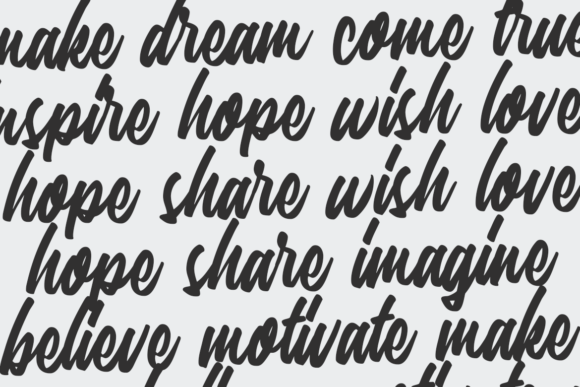 make dream come true
inspire hope wish love
hope share wish love
hope share imagine
believe motivate make